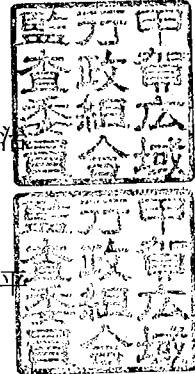 甲賀広域
行政組合
監査委員
甲賀広域
行政組合
監査委員
平